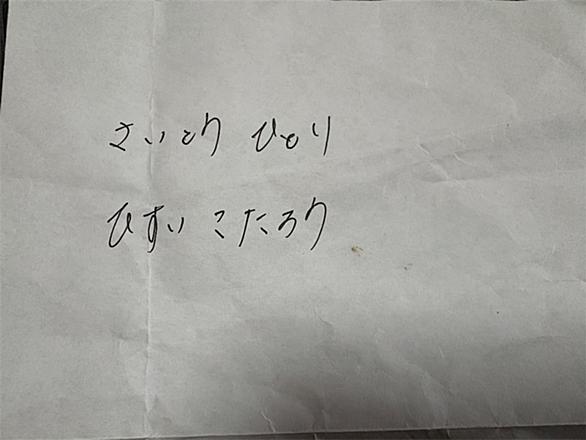 さいとう ひとり
ひすい こたろう